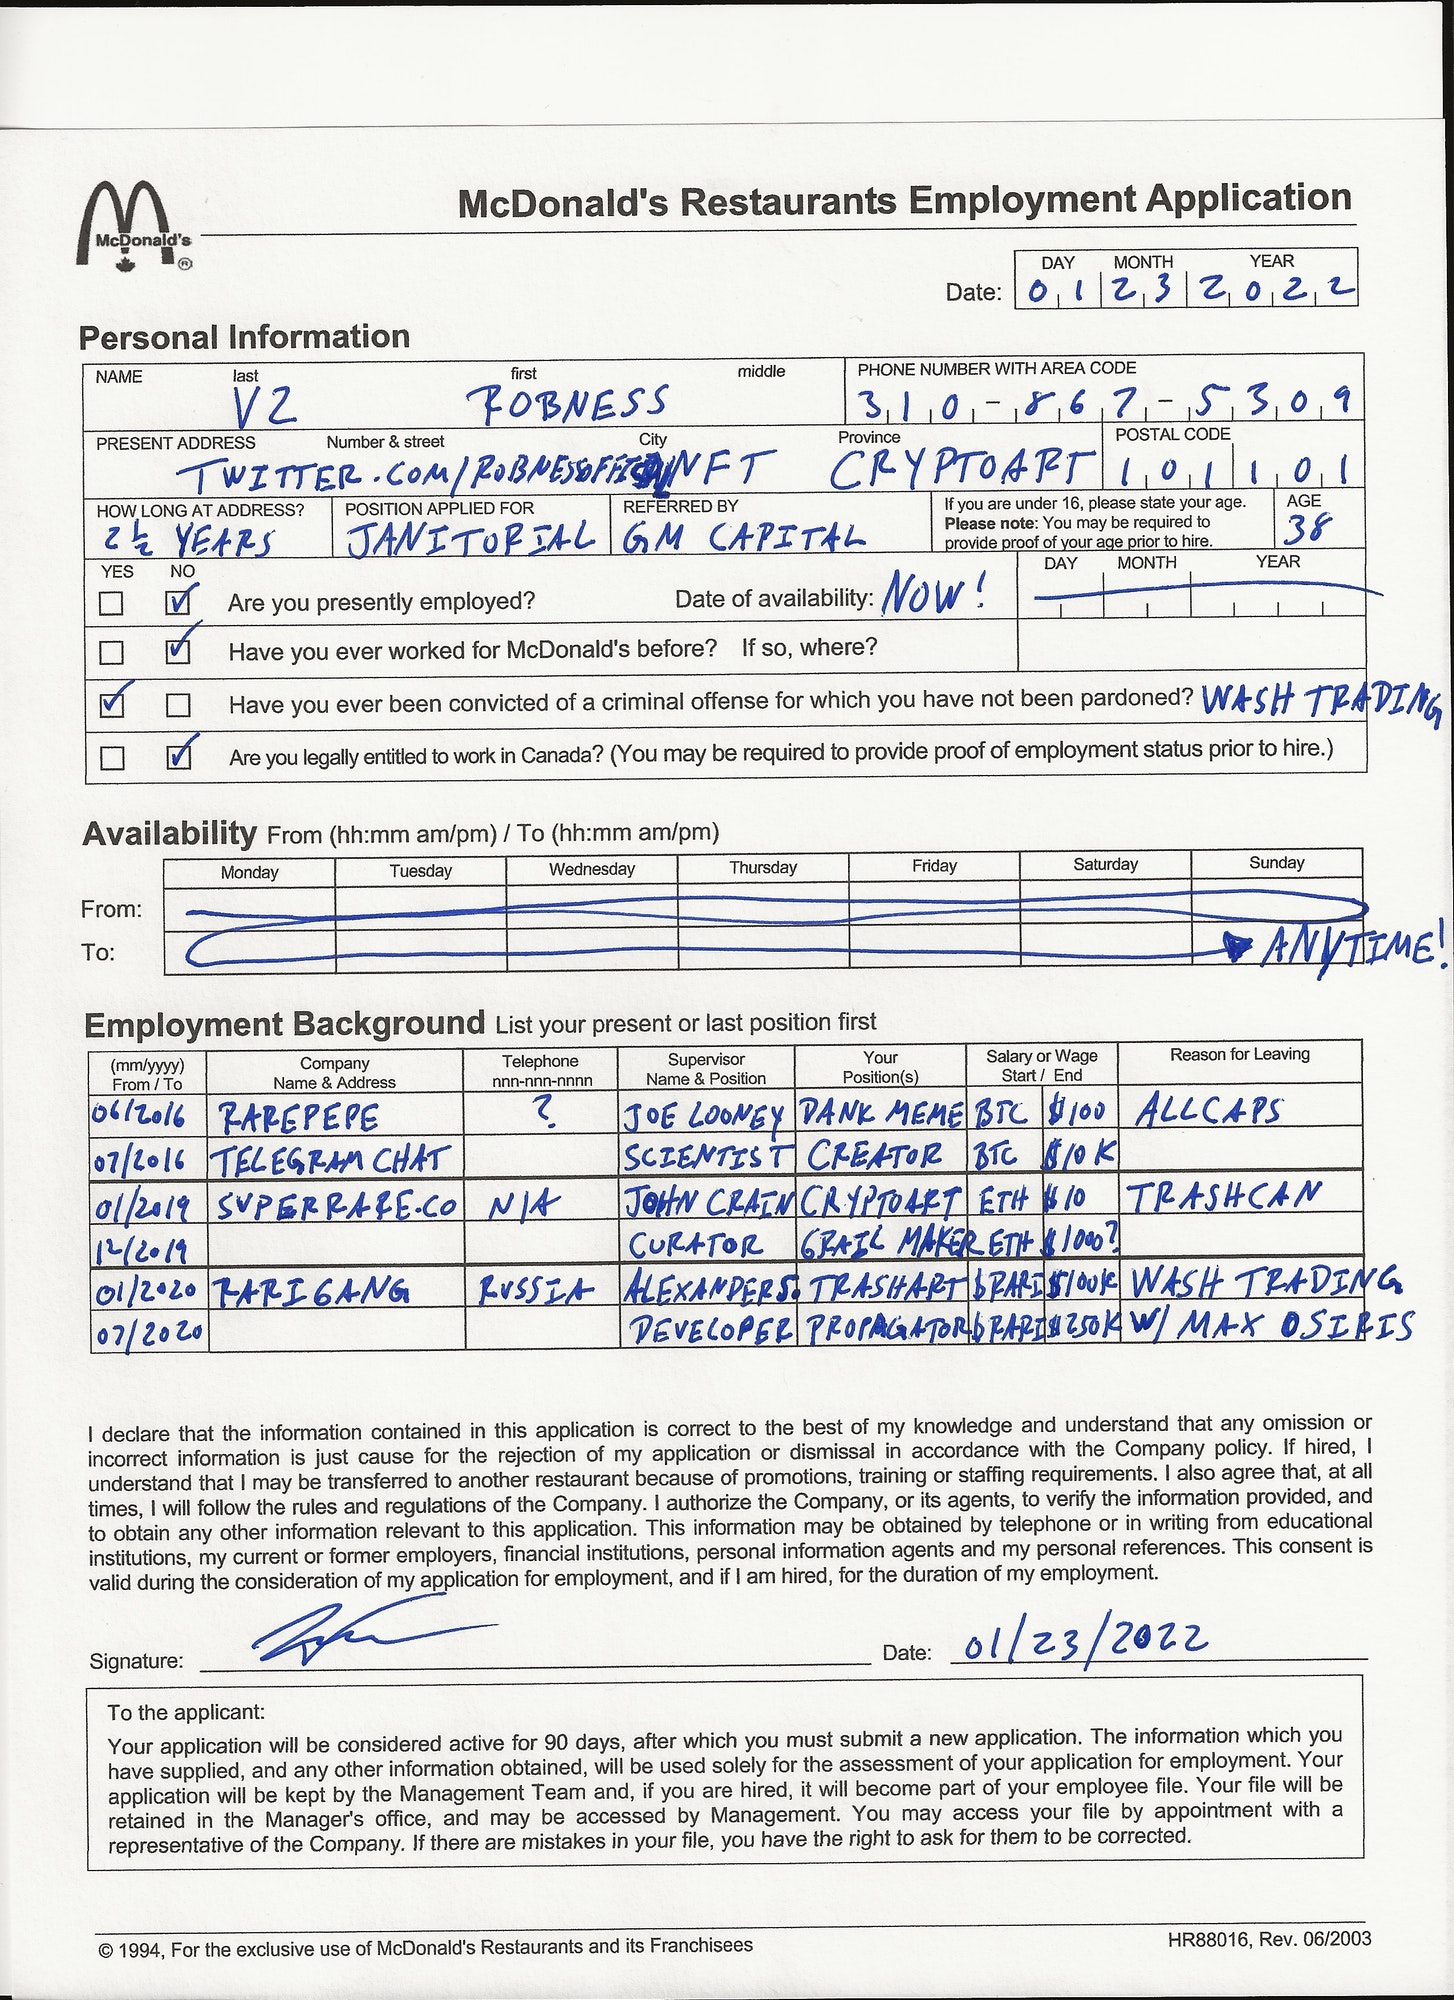 McDonald's Restaurants Employment Application
McDonald's ®
DAY MONTH YEAR
Date: 01 23 2022
Personal Information
NAME last first middle PHONE NUMBER WITH AREA CODE
V2 ROBNESS 310-867-5309
PRESENT ADDRESS Number & street City Province POSTAL CODE
NFT CRYPTOART 101101
HOW LONG AT ADDRESS? POSITION APPLIED FOR REFERRED BY If you are under 16, please state your age. AGE
Please note: You may be required to
provide proof of your age prior to hire.
2 ½ YEARS JANITORIAL GM CAPITAL 38
YES NO DAY MONTH YEAR
Are you presently employed? Date of availability: NOW!
Have you ever worked for McDonald's before? If so, where?
Have you ever been convicted of a criminal offense for which you have not been pardoned? WASH TRADING
Are you legally entitled to work in Canada? (You may be required to provide proof of employment status prior to hire.)
Availability From (hh:mm am/pm) / To (hh:mm am/pm)
Monday Tuesday Wednesday Thursday Friday Saturday Sunday
From:
To: ANYTIME!
Employment Background List your present or last position first
(mm/yyyy) Company Telephone Supervisor Your Salary or Wage Reason for Leaving
From / To Name & Address nnn-nnn-nnnn Name & Position Position(s) Start / End
06/2016 RAREPEPE ? JOE LOONEY DANK MEME BTC $100 ALLCAPS
07/2016 TELEGRAM CHAT SCIENTIST CREATOR BTC $10K
01/2019 SUPERRARE.CO N/A JOHN CRAIN CRYPTOART ETH $10 TRASHCAN
12/2019 CURATOR GRAIL MAKER ETH $1000?
01/2020 RARI GANG RUSSIA ALEXANDER S. TRASHART $RARI $100K WASH TRADING
07/2020 DEVELOPER PROPAGATOR $RARI $250K W/ MAX OSIRIS
I declare that the information contained in this application is correct to the best of my knowledge and understand that any omission or
incorrect information is just cause for the rejection of my application or dismissal in accordance with the Company policy. If hired, I
understand that I may be transferred to another restaurant because of promotions, training or staffing requirements. I also agree that, at all
times, I will follow the rules and regulations of the Company. I authorize the Company, or its agents, to verify the information provided, and
to obtain any other information relevant to this application. This information may be obtained by telephone or in writing from educational
institutions, my current or former employers, financial institutions, personal information agents and my personal references. This consent is
valid during the consideration of my application for employment, and if I am hired, for the duration of my employment.
Signature: Date: 01/23/2022
To the applicant:
Your application will be considered active for 90 days, after which you must submit a new application. The information which you
have supplied, and any other information obtained, will be used solely for the assessment of your application for employment. Your
application will be kept by the Management Team and, if you are hired, it will become part of your employee file. Your file will be
retained in the Manager's office, and may be accessed by Management. You may access your file by appointment with a
representative of the Company. If there are mistakes in your file, you have the right to ask for them to be corrected.
© 1994, For the exclusive use of McDonald's Restaurants and its Franchisees HR88016, Rev. 06/2003